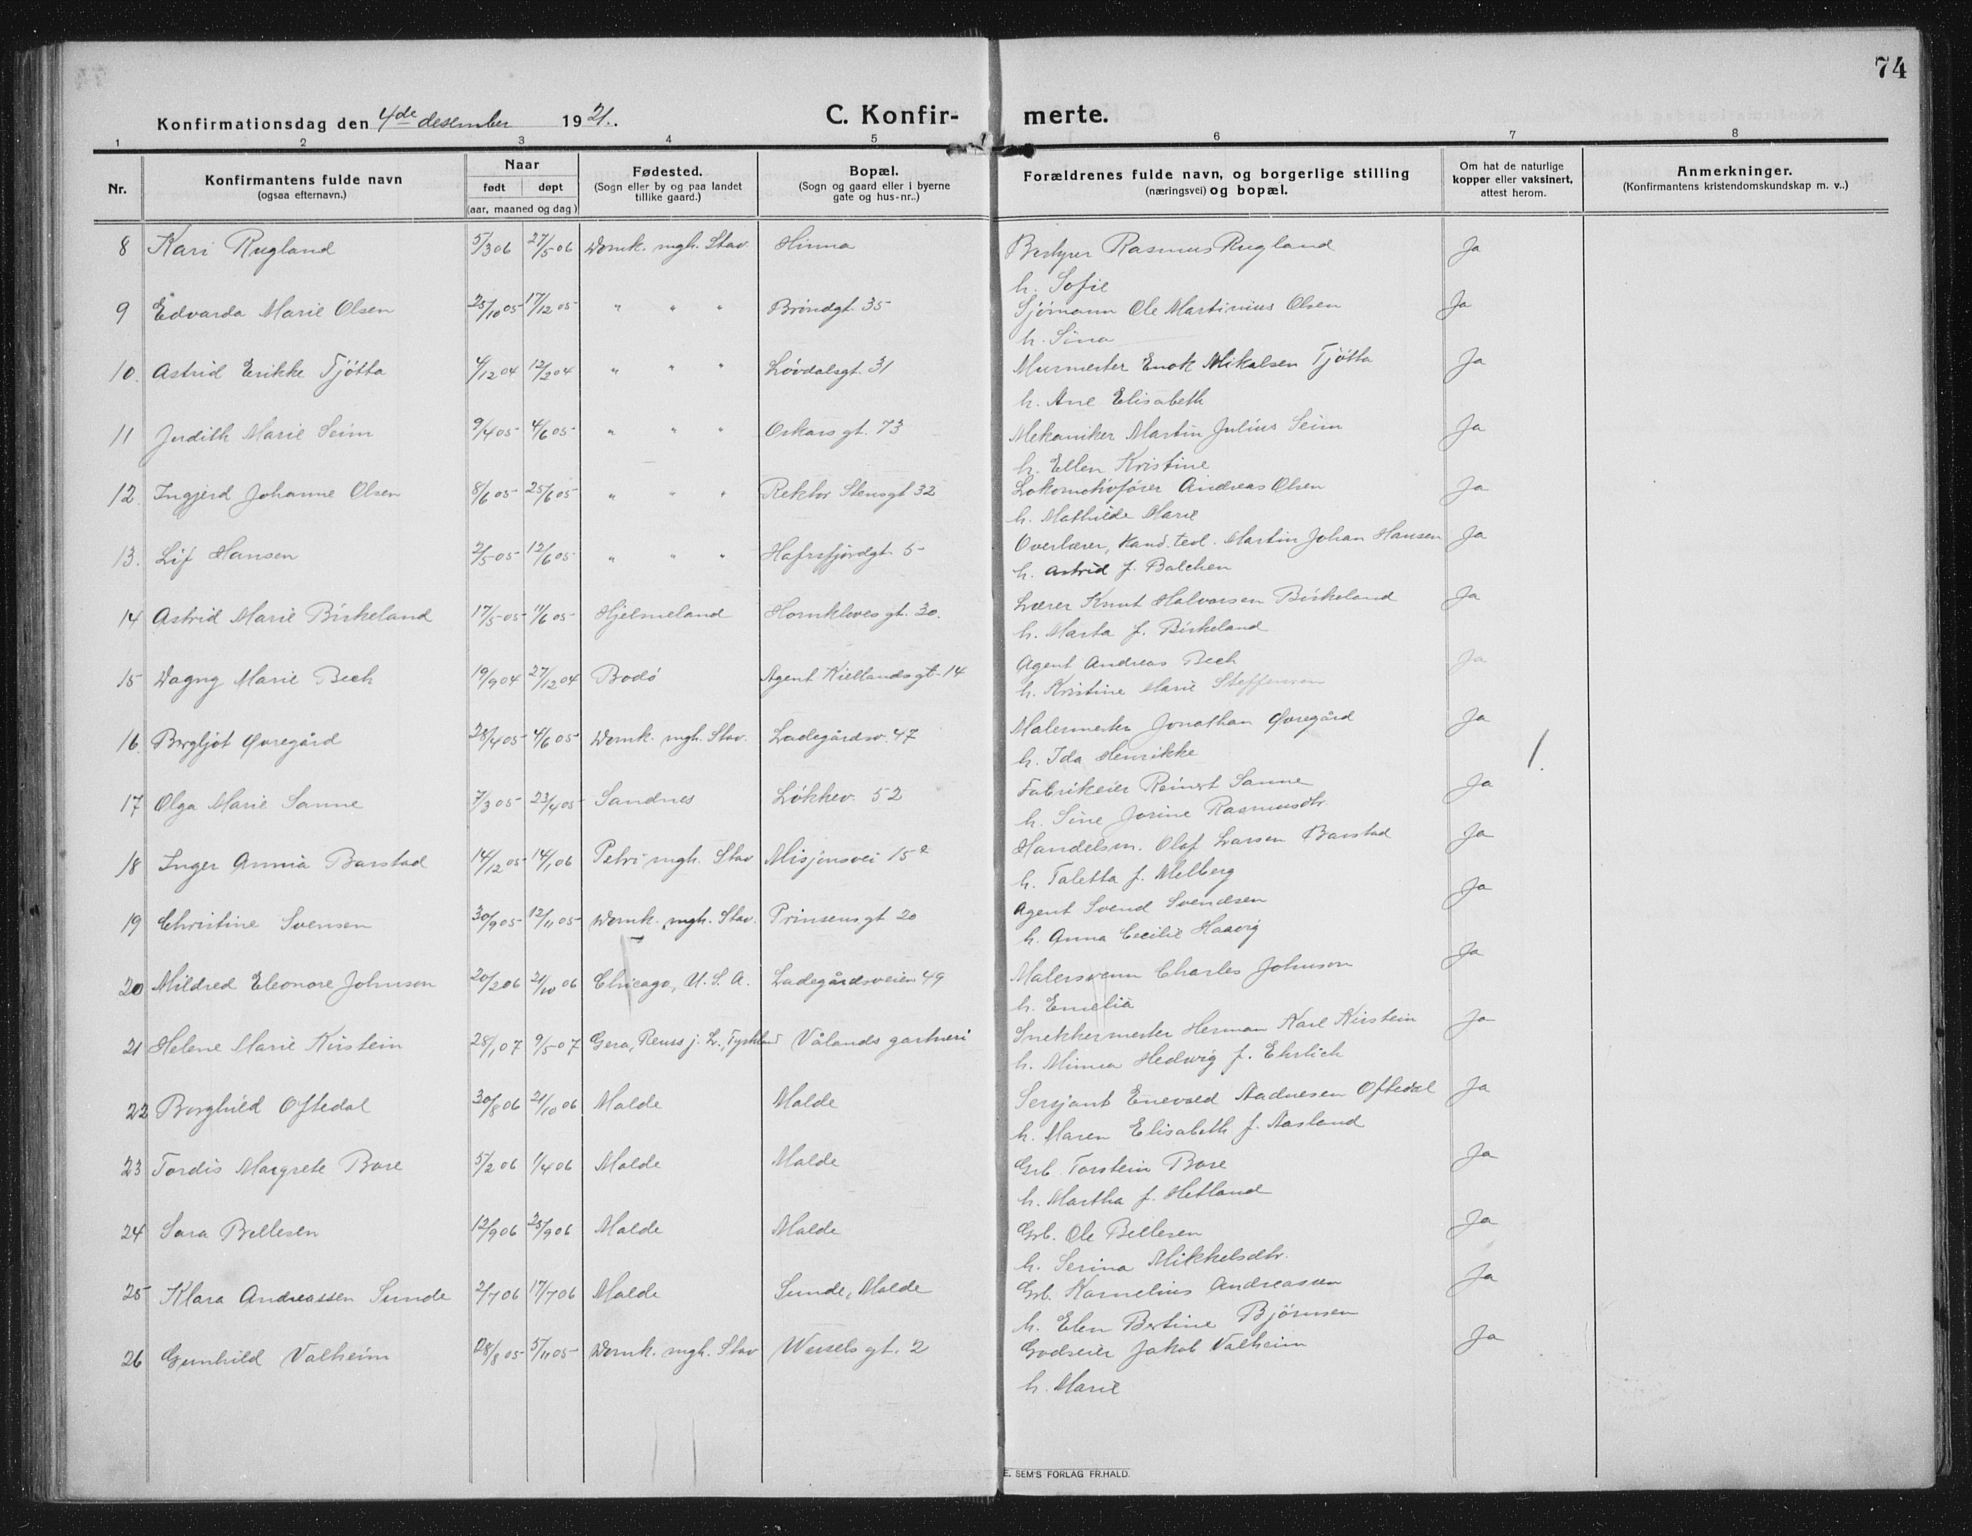 74
Konfirmationsdag den 4de desember 1921.
C. Konfirmerte.
1 2 3 4 5 6 7 8
Nr.
Konfirmantens fulde navn
(ogsaa efternavn.)
Naar
født døpt
(aar, maaned og dag)
Fødested.
(Sogn eller by og paa landet
tillike gaard.)
Bopæl.
(Sogn og gaard eller i byerne
gate og hus-nr..)
Forældrenes fulde navn, og borgerlige stilling
(næringsvei) og bopæl.
Om hat de naturlige
kopper eller vaksinert,
attest herom.
Anmerkninger.
(Konfirmantens kristendomskundskap m. v..)
8 Kari Rugland 5/3 06 27/5 06 Domk. mgh. Stav. Hinna Bestyrer Rasmus Rugland Ja
h. Sofie
9 Edvarda Marie Olsen 25/10 05 17/12 05 " " " Brøndgt. 35 Sjømann Ole Martinius Olsen Ja
h. Sina
10. Astrid Erikke Tjøtta 4/12 04 12/2 04 " " " Løvdalsgt. 31 Murmester Enok Mikalsen Tjøtta Ja
h. Ane Elisabeth
11 Judith Marie Seim 9/4 05 4/6 05 " " " Oskarsgt. 73 Mekaniker Martin Julius Seim Ja
h. Ellen Kristine
12. Ingjerd Johanne Olsen 8/6 05 25/6 05 " " " Rektor Stensgt 32 Lokomotivfører Andreas Olsen Ja
h. Mathilde Marie
13. Lif Hansen 2/5 05 12/6 05 " " " Hafrsfjordgt. 5 Overlærer, Kand. teol. Martin Johan Hansen Ja
h. Astrid f. Balchen
14 Astrid Marie Birkeland 17/5 05 11/6 05 Hjelmeland Hornklovesgt. 30. Lærer Knut Halvorsen Birkeland Ja
h. Marta f. Birkeland
15 Dagny Marie Bech 19/9 04 27/12 04 Bodø Agent Kiellandsgt. 14 Agent Andreas Bech Ja
h. Kristine Marie Steffensen
16. Bergljot Øvregård 28/4 05 4/6 05 Domk. mgh. Stav. Ladegårdsv. 47 Malermester Jonathan Øvregård Ja
h. Ida Henrikke
1.
17 Olga Marie Sanne 7/3 05 23/4 05 Sandnes Løkkev. 52 Fabrikeier Reinert Sanne Ja
h. Sine Jorine Rasmusdtr
18 Inger Annia Barstad 14/12 05 14/1 06 Petri mgh. Stav Misjonsvei 15 a Handelsm. Olaf Larsen Barstad Ja
h. Taletta f. Melberg
19 Christine Svensen 30/9 05 12/11 05 Domk. mgh. Stav. Prinsensgt 20 Agent Svend Svendsen Ja
h. Anna Cecilie Haavig
20 Mildred Eleonore Johnson 20/2 06 21/10 06 Chicago, U.S.A. Ladegårdsveien 49 Malersvenn Charles Johnson Ja
h. Emelia
21 Helene Marie Kirstein 28/1 07 9/5 07 Gera, Reuss j. L., Tyskland Vålands gartneri Snekkermester Herman Karl Kirstein Ja
h. Minna Hedwig f. Ehrlich
22 Borghild Oftedal 30/8 06 21/10 06 Malde Malde Sersjant Enevald Aadnesen Oftedal Ja
h. Maren Elisabeth f. Aasland
23 Tordis Margrete Bore 5/2 06 1/4 06 Malde Malde Grb. Torstein Bore Ja
h. Martha f. Hetland
24 Sara Bellesen 12/9 06 25/9 06 Malde Malde Grb. Ole Bellesen Ja
h. Serina Mikkelsdtr.
25 Klara Andreassen Sunde 2/7 06 17/7 06 Malde Sunde, Malde Grb. Kornelius Andreassen Ja
h. Elen Bertine Bjørnsen
26 Gunhild Valheim 28/8 05 5/11 05 Domk. mgh. Stav Weiselsgt. 2 Godseier Jakob Valheim Ja
h. Marie
E. SEM'S FORLAG FR.HALD.